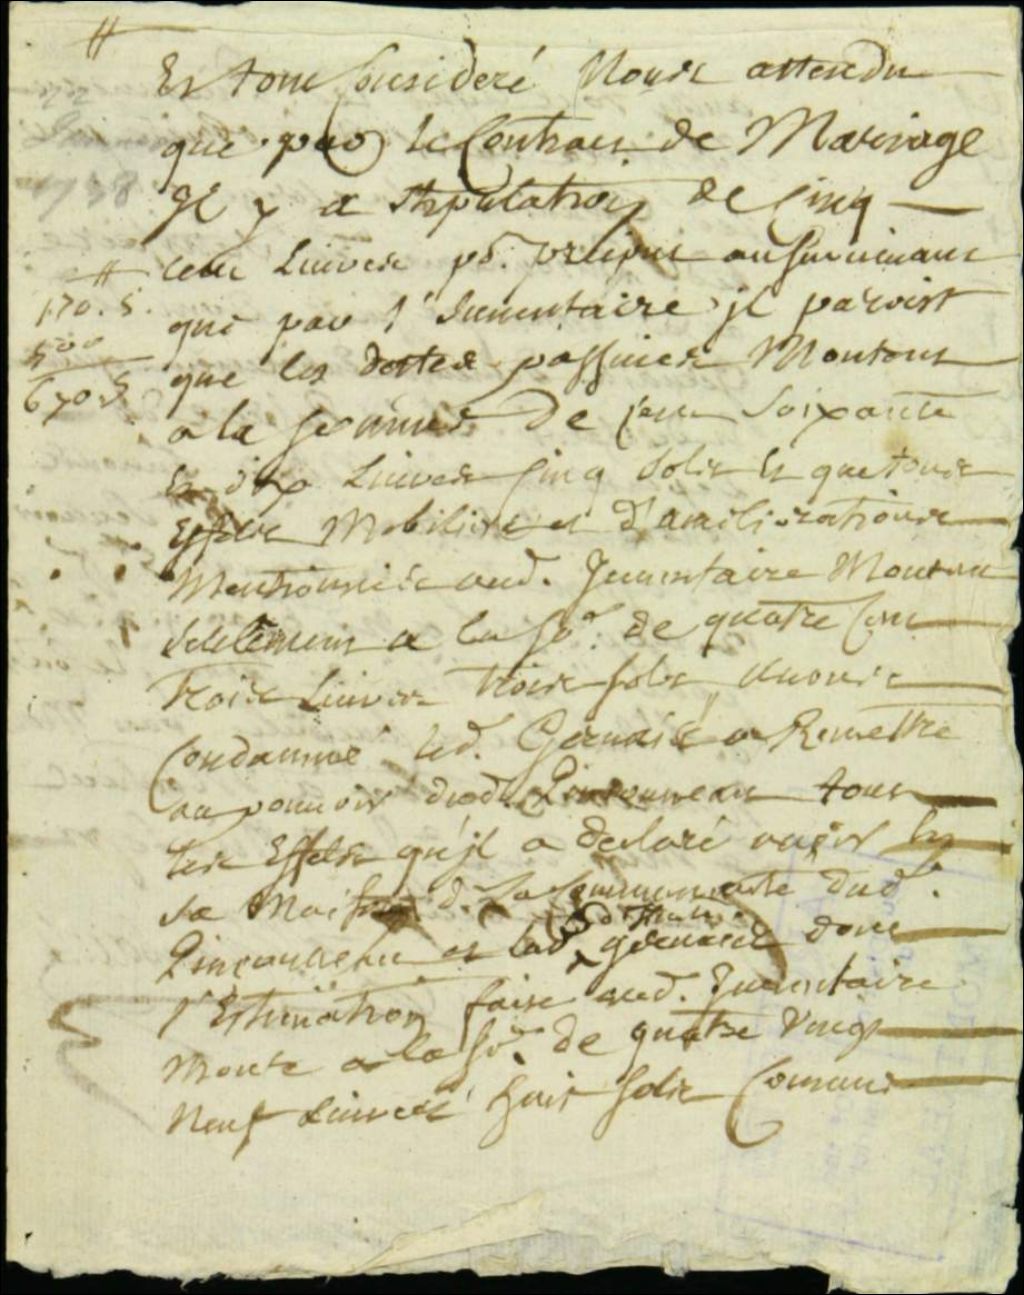 Et tout Consideré Nous attendu
que par le Contract de Mariage
Il y a stipulation de Cinq
cent Livres pd. preciput au survivant
que par l'Inventaire il paroist
170# 5.
500
670. 5
que les dettes passives Montent
a la somme de cent Soixante
et dix Livres Cinq Sols et que tous
Effets Mobiliers et d'ameliorations
Mentionnés aud. Inventaire Montent
Seulement a la so.e de quatre Cent
trois Livres trois sols, Avons
Condamné led. Gervais a Remettre
au pouvoir dud. Pinsonneau tous
les Effets qu'il a declaré avoir En
sa Maison de la Communauté dud.
Pinsonneau et lad. deffunte Gervaise dont
l'Estimation faite aud. Inventaire
Monte a la so.e de quatre Vingt
Neuf Livres huit sols Comme